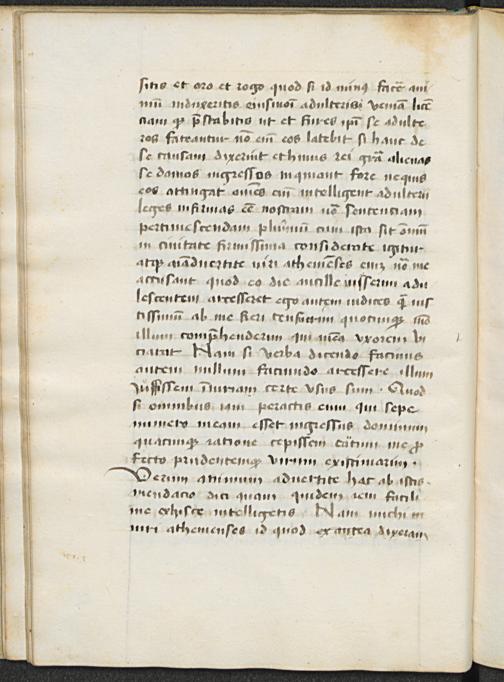 sitis et oro et rogo quod si id minus facē ani
mū induxeritis eiusmōi adulteris veniā licē
ciam qꝫ p̄stabitis ut et fures ipī se adulte
ros fateantur nō eī eos latebit si hanc de
se causam dixerint et huius rei grā alienas
se domos ingressos inquiant fore ne quis
eos attingat oīnes eī intelligent adulterii
leges infirmas eē nostram uō sententiam
pertimescendam plurimū cum ista sit oīum
in civitate firmissima considerate igitur
atqꝫ aīadvertite viri athenēses eūz nō me
accusant quod eo die ancille iusserim adu
lescentem arcesseret ego autem iudices qd̄ ius
tissimum ab me fieri censūtum quocūqꝫ mō
illum comprhenderim qui meā uxorem vi
ciarat Nam si verba dicendo facimus
autem nullum faciundo arcessere illum
iussissem iniuriam certe usus sum. Quod
si omnibus iam peractis eum qui sepe
numero meam esset ingressus domum
quacūqꝫ ratione cepissem tātum me ꝓ
fecto prudentemqꝫ virum existimarim.
Verum animum advertite hac ab istis
mendacio dici quam quidem rem facili
me ex hisce intelligetis Nam michi ut
viri athenienses id quod ex antea dixeram